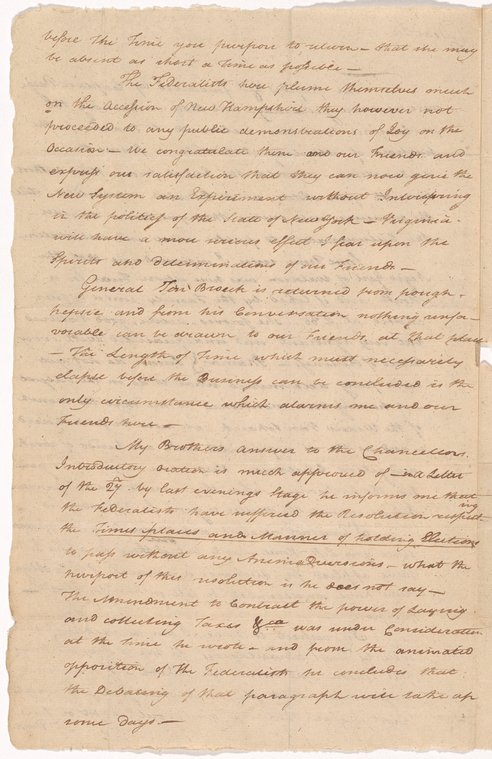 before the time you purpose to return – that she may
be absent as short a time as possible –
The Federalists here plume themselves much
on the Accession of New Hampshire they however not
proceeded to any public demonstrations of Joy on the
Occasion – We congratulate them and our Friends and
express our satisfaction that they can now give the
New System an Experiment without Interfering
in the politics of the State of New York – Virginia
will have a more serious effect I fear upon the
Spirits and determinations of our Friends –
General Ten Broeck is returned from pough-
kepsie and from his Conversation nothing unfa-
vorable can be drawn to our Friends at that place
– The Length of Time which must necessarily
elapse before the Business can be concluded is the
only circumstance which alarms me and our
Friends here –
My Brothers answer to the Chancellors
Introductory oration is much approved of – in a Letter
of the 27 by last evenings Stage he informs me that
the Federalists have suffered the Resolution respecting
the Times places and Manner of holding Elections
to pass without any Animadversions – what the
purport of this resolution is he does not say –
The Amendment to Contrast the power of Laying
and collecting Taxes &ca was under Consideration
at the time he wrote – and from the animated
opposition of the Federalists he concludes that
the Debating of that paragraph will take up
some days –